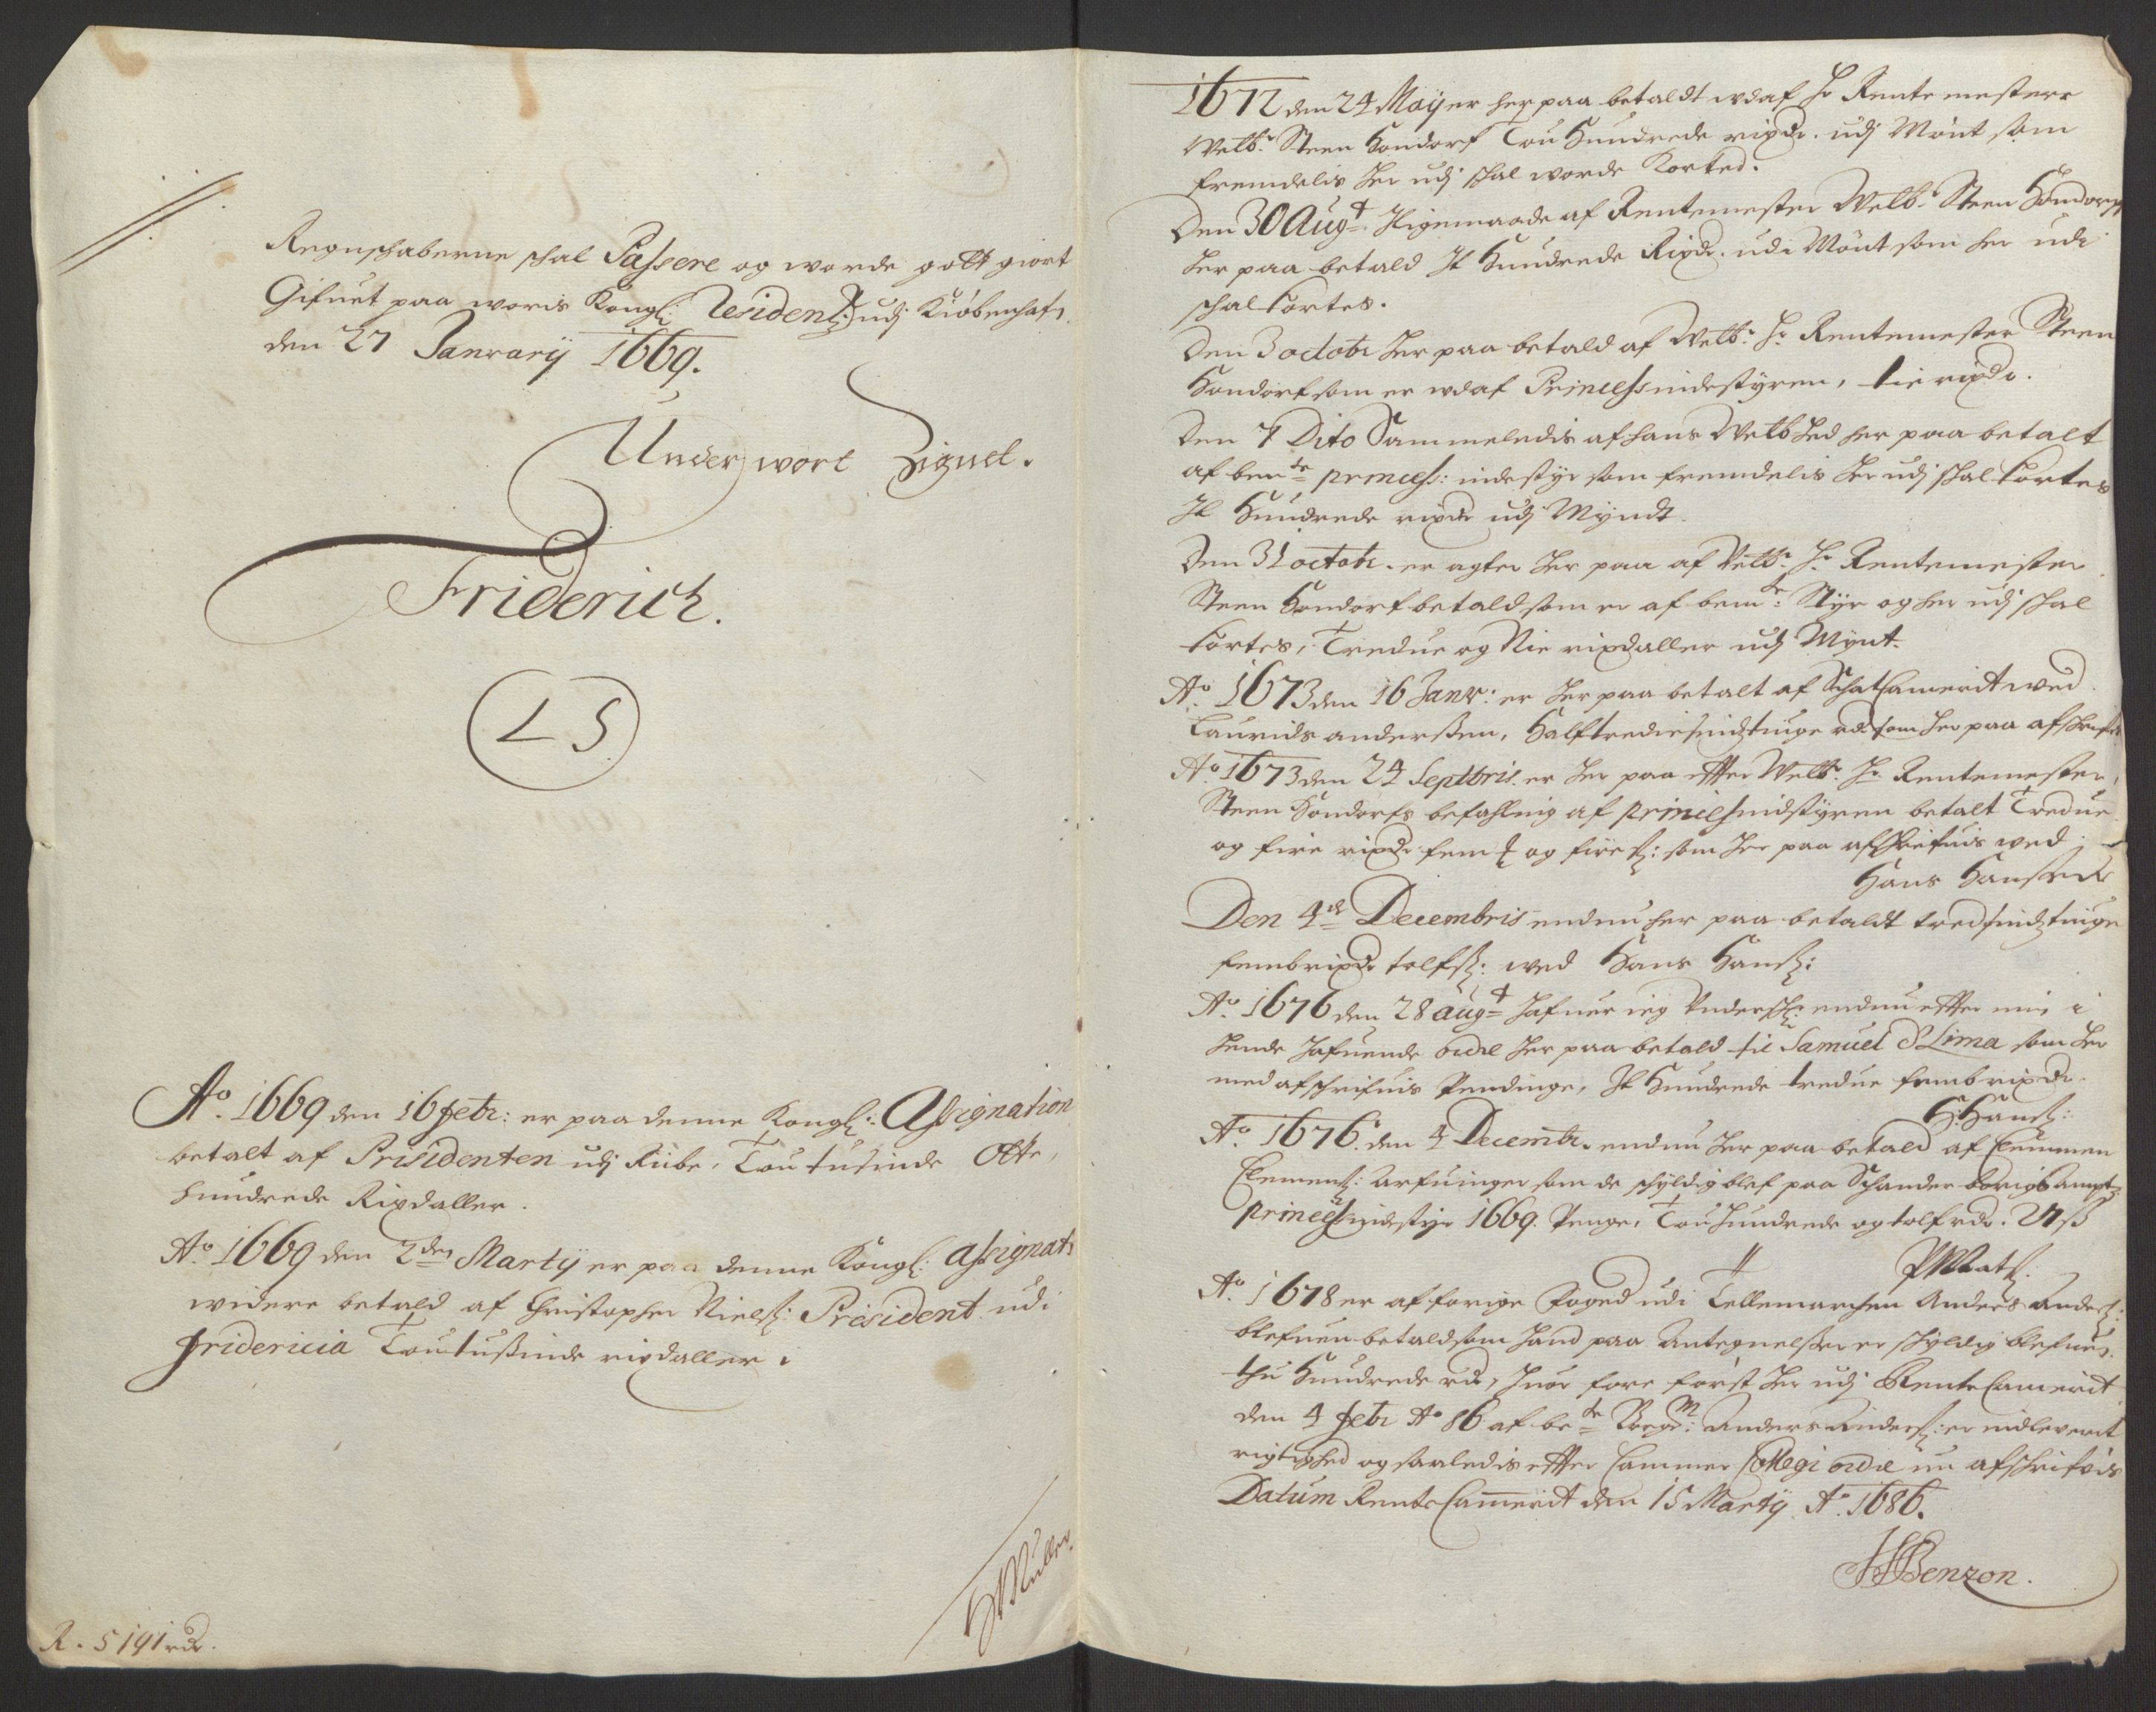 Regnschaberne schal Passere og worde gott giort
Gifuet paa woris Kongl: Residentz udj Kiøbenhafn
den 27 Januarij 1669.
Under wort Zignet.
Friderich.
L S
Ao. 1669 den 16 febr: er paa denne Kongl: Assignation
betalt af Prisidenten udj Riibe, Tou tusinde Otte
hundrede Rixdaller.
Ao. 1669 den 2den Martij er paa denne Kongl: assignat
widere betald af Christopher Nielss: President udi
Fridericia Tou tussinde rixdaller.
H Müller.
R. 5191 rdr.
1672 den 24 Maij er her paa betaldt udaf Hr Rentemestere
Welb: Steen Hondorf Tou Hundrede rixdr. udj Mønt som
fremdelis her udj schal worde Korted.
Den 30 Augt: Ligemaade af Rentemester Welb: Steen Hondorf
her paa betald It Hundrede Rixdr. udi Mønt som her udi
schal kortes.
Den 3 octobr her paa betald af Welb: Hr Rentemester Steen
Hondorf som er udaf Princess indestyren, tie rixdr.
Den 7 Dito Sammeledis af hans Welbhed her paa betalt
af bemte princess: indestyr som fremdelis her udj schal kortes
It Hundrede rixdr udj Myndt.
Den 31 octobr. er agter her paa af Velb: Hr Rentemester
Steen Hondorf betald som er af bemte: Styr og her udj schal
kortes, Tredue og Nie rixdaller udj Mynt.
Ao. 1673 den 16 Janv: er her paa betalt af SchatCamerit wed
Laurids anderssen, Halftrediesindstiuge rdr som her paa afschrifis
Ao. 1673 den 24 Septbris. er her paa effter Welb: Hr. Rentemester
Steen Hondorfs befahling af princess indstyren betalt Tredue
og fire rixdr fem ₰ og fire ss: som her paa afschrifuis wed
Hans Hanssen
Den 4de Decembris endnu her paa betaldt tredsindstiuge
femb rixdr tolf ss: wed Hans Hanss:
Ao. 1676 den 28 augt: hafuer ieg Underschr: endnu effter min i
hende hafuende ordre her paa betald til Samuel d Lima som her
med afschrifuis Pendinge, It Hundrede tredue femb rixdr.
H: Hanss:
Ao. 1676. den 4 Decembr. endnu her paa betald af Clemmen
Clemens: arfuinger som de schyldig blef paa Schanderborigs ampts
princess indestyr 1669. Penge, Tou Hundrede og tolf rdr. 27 ss
PMats:
Ao. 1678 er af forige Foged udi Tellemarchen Anders Anderss:
blefuen betald som hand paa Antegnelsser er schyldig blefuen
thu Hundrede rdr, huor fore først her udj RenteCamerit
den 4 febr Ao 86 af bete Borgm: Anders Anderss: er indleverit
rigtighed og saaledis effter Cammer Collegi ordre nu afschrifvis
Datum RenteCammerit den 15 Martij Ao. 1686.
HHBenzon.